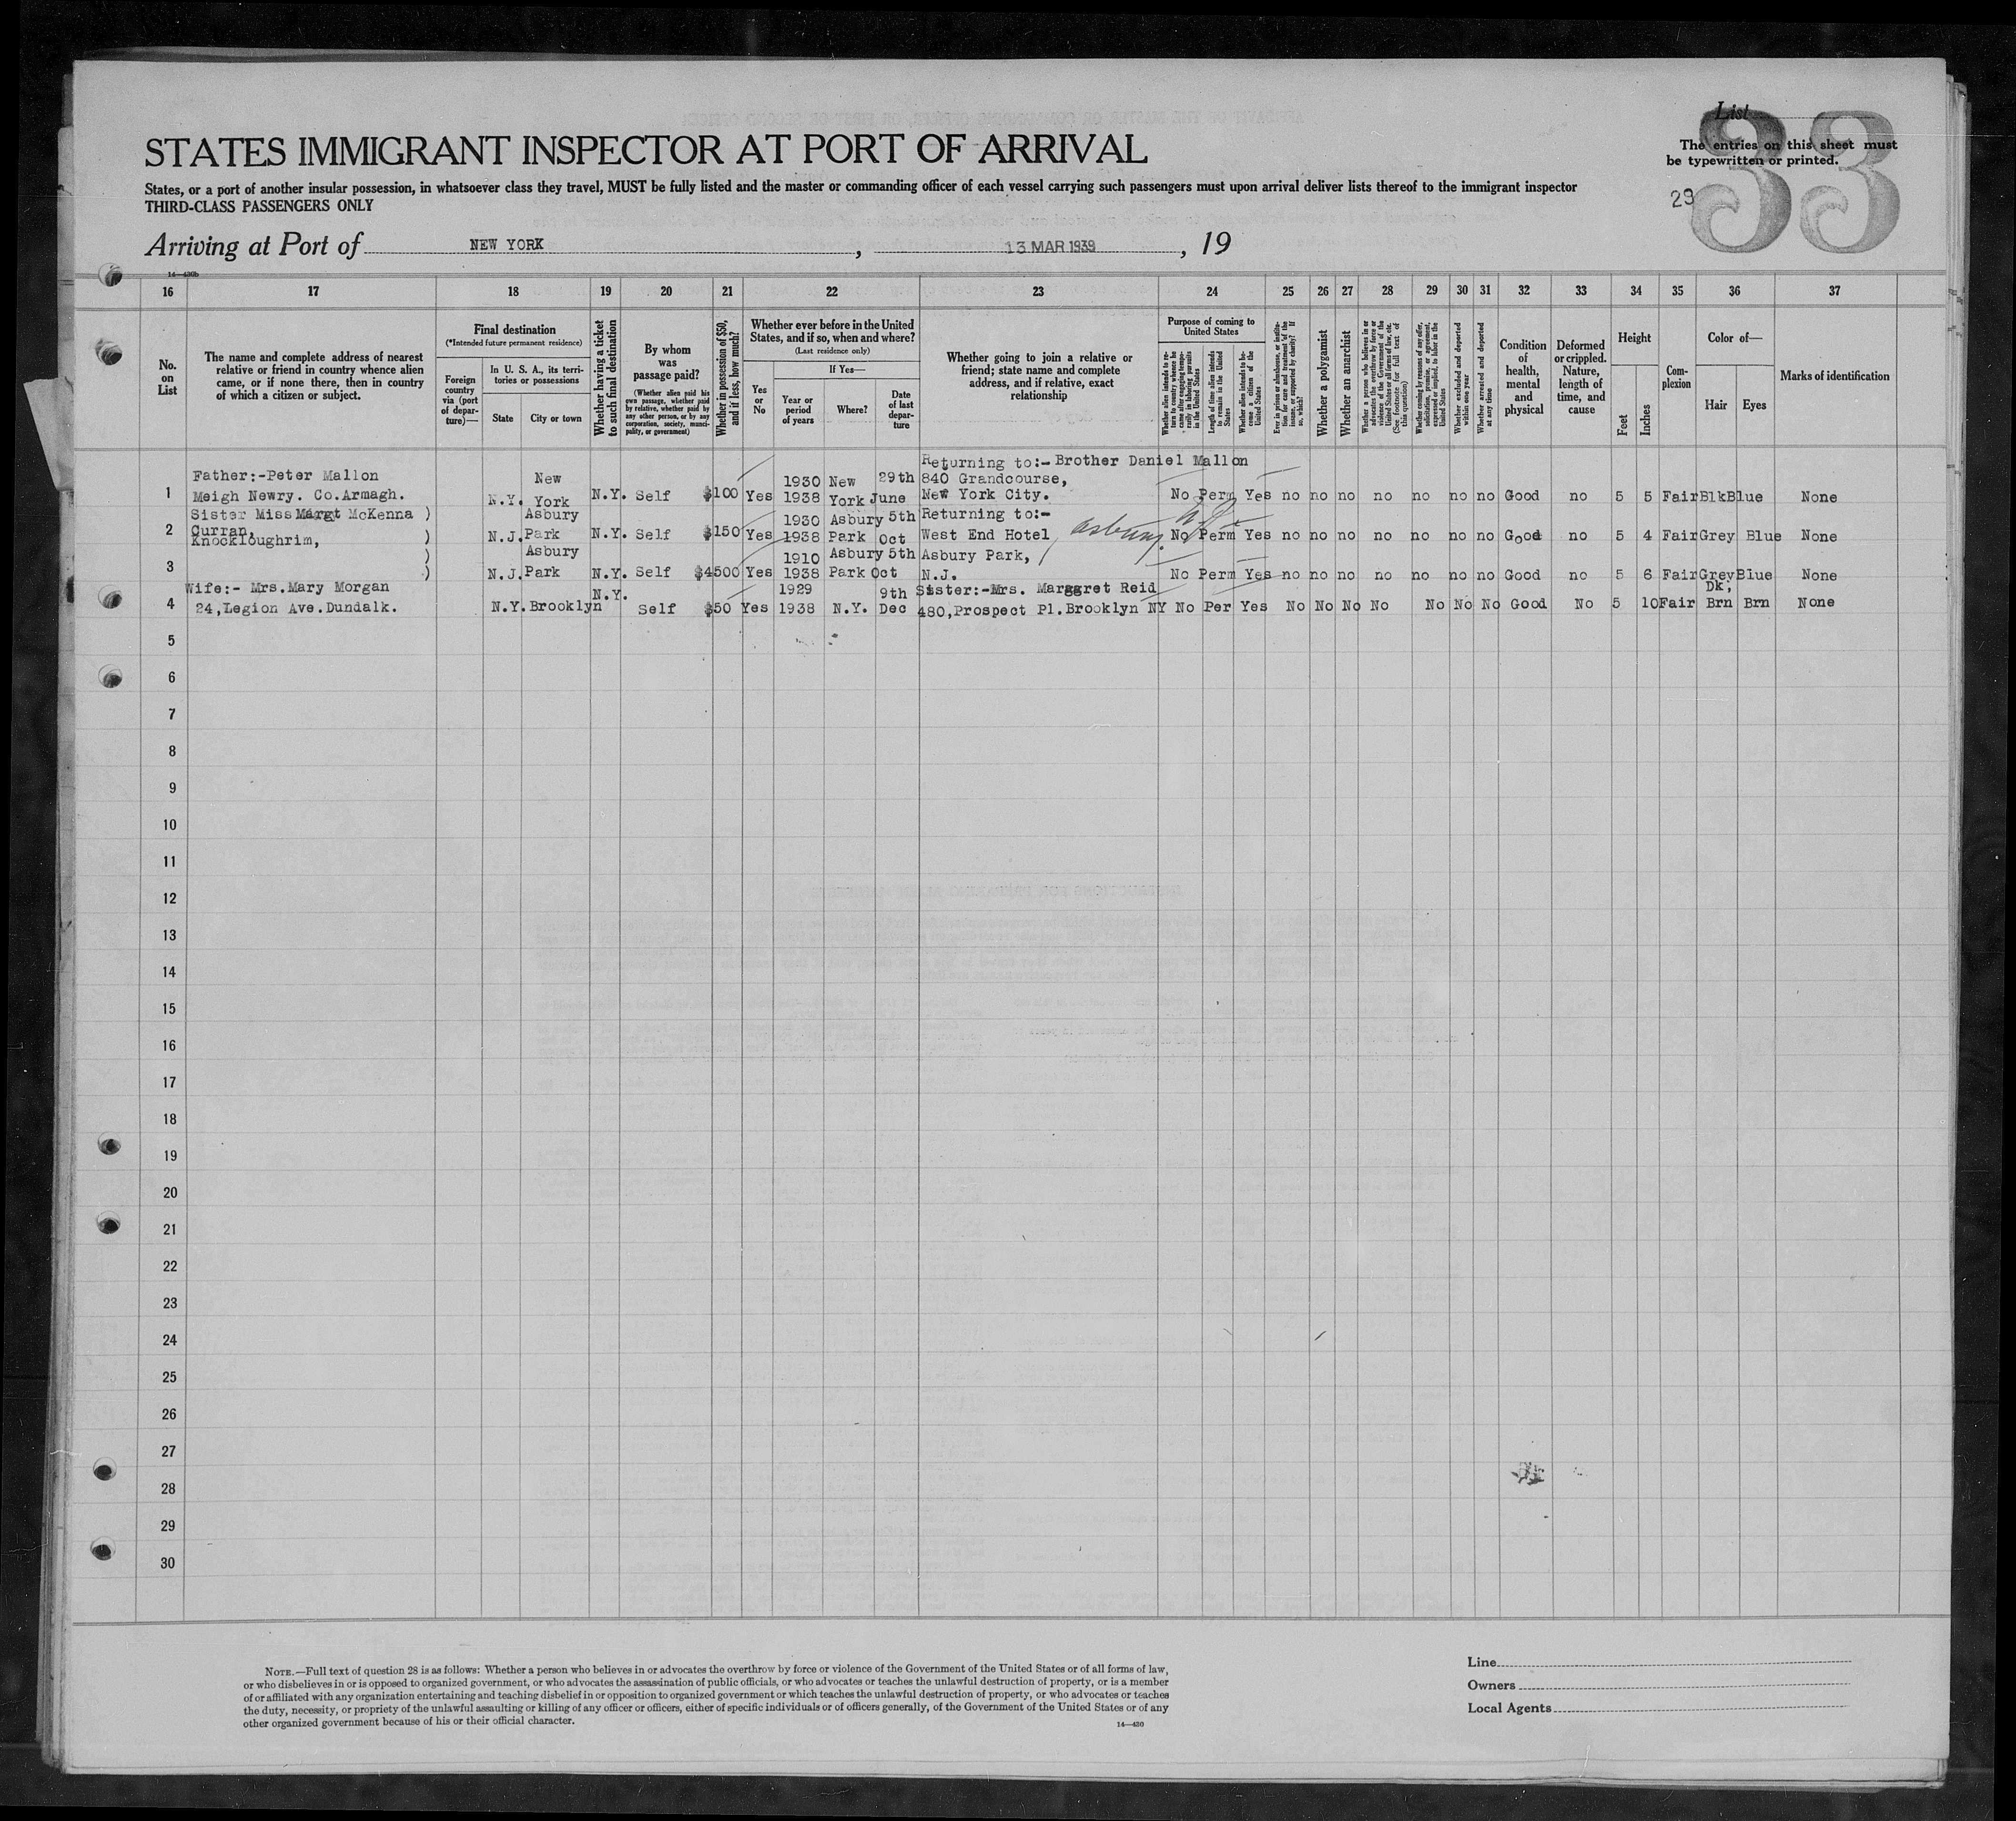 List
33
The entries on this sheet must
be typewritten or printed.
29
STATES IMMIGRANT INSPECTOR AT PORT OF ARRIVAL
States, or a port of another insular possession, in whatsoever class they travel, MUST be fully listed and the master or commanding officer of each vessel carrying such passengers must upon arrival deliver lists thereof to the immigrant inspector
THIRD-CLASS PASSENGERS ONLY
Arriving at Port of NEW YORK , 13 MAR 1939 , 19
14—430b
16 17 18 19 20 21 22 23 24 25 26 27 28 29 30 31 32 33 34 35 36 37
No.
on
List
The name and complete address of nearest
relative or friend in country whence alien
came, or if none there, then in country
of which a citizen or subject.
Final destination
(*Intended future permanent residence)
Foreign
country
via (port
of depar-
ture)—
In U. S. A., its terri-
tories or possessions
State
City or town
Whether having a ticket
to such final destination
By whom
was
passage paid?
(Whether alien paid his
own passage, whether paid
by relative, whether paid by
any other person, or by any
corporation, society, munici-
pality, or government)
Whether in possession of $50,
and if less, how much?
Whether ever before in the United
States, and if so, when and where?
(Last residence only)
Yes
or
No
If Yes—
Year or
period
of years
Where?
Date
of last
depar-
ture
Whether going to join a relative or
friend; state name and complete
address, and if relative, exact
relationship
Purpose of coming to
United States
Whether alien intends to re-
turn to country whence he
came after engaging tempo-
rarily in laboring pursuits
in the United States
Length of time alien intends
to remain in the United
States
Whether alien intends to be-
come a citizen of the
United States
Ever in prison or almshouse, or institu-
tion for care and treatment of the
insane, or supported by charity? If
so, which?
Whether a polygamist
Whether an anarchist
Whether a person who believes in or
advocates the overthrow by force or
violence of the Government of the
United States or all forms of law, etc.
(See footnote for full text of
this question)
Whether coming by reasons of any offer,
solicitation, promise, or agreement,
expressed or implied, to labor in the
United States
Whether excluded and deported
within one year
Whether arrested and deported
at any time
Condition
of
health,
mental
and
physical
Deformed
or crippled.
Nature,
length of
time, and
cause
Height
Feet
Inches
Com-
plexion
Color of—
Hair
Eyes
Marks of identification
Returning to:- Brother Daniel Mallon
Father:-Peter Mallon New 1930 New 29th 840 Grandcourse,
1 Meigh Newry. Co.Armagh. N.Y. York N.Y. Self $100 Yes 1938 York June New York City. No Perm Yes no no no no no no no Good no 5 5 Fair Blk Blue None
Sister Miss Margt McKenna ) Asbury 1930 Asbury 5th Returning to:-
2 Curran, N.J. Park N.Y. Self $150 Yes 1938 Park Oct West End Hotel Asbury No Perm Yes no no no no no no no Good no 5 4 Fair Grey Blue None
Knockloughrim, )
) Asbury 1910 Asbury 5th Asbury Park,
3 ) N.J. Park N.Y. Self $4500 Yes 1938 Park Oct N.J. No Perm Yes no no no no no no no Good no 5 6 Fair Grey Blue None
Wife:- Mrs.Mary Morgan N.Y. 1929 9th Sister:-Mrs. Marggret Reid Dk;
4 24,Legion Ave.Dundalk. N.Y. Brooklyn Self $50 Yes 1938 N.Y. Dec 480,Prospect Pl.Brooklyn NY No Per Yes No No No No No No No Good No 5 10 Fair Brn Brn None
5
6
7
8
9
10
11
12
13
14
15
16
17
18
19
20
21
22
23
24
25
26
27
28
29
30
NOTE.—Full text of question 28 is as follows: Whether a person who believes in or advocates the overthrow by force or violence of the Government of the United States or of all forms of law,
or who disbelieves in or is opposed to organized government, or who advocates the assassination of public officials, or who advocates or teaches the unlawful destruction of property, or is a member
of or affiliated with any organization entertaining and teaching disbelief in or opposition to organized government or which teaches the unlawful destruction of property, or who advocates or teaches
the duty, necessity, or propriety of the unlawful assaulting or killing of any officer or officers, either of specific individuals or of officers generally, of the Government of the United States or of any
other organized government because of his or their official character.
14—430
Line
Owners
Local Agents